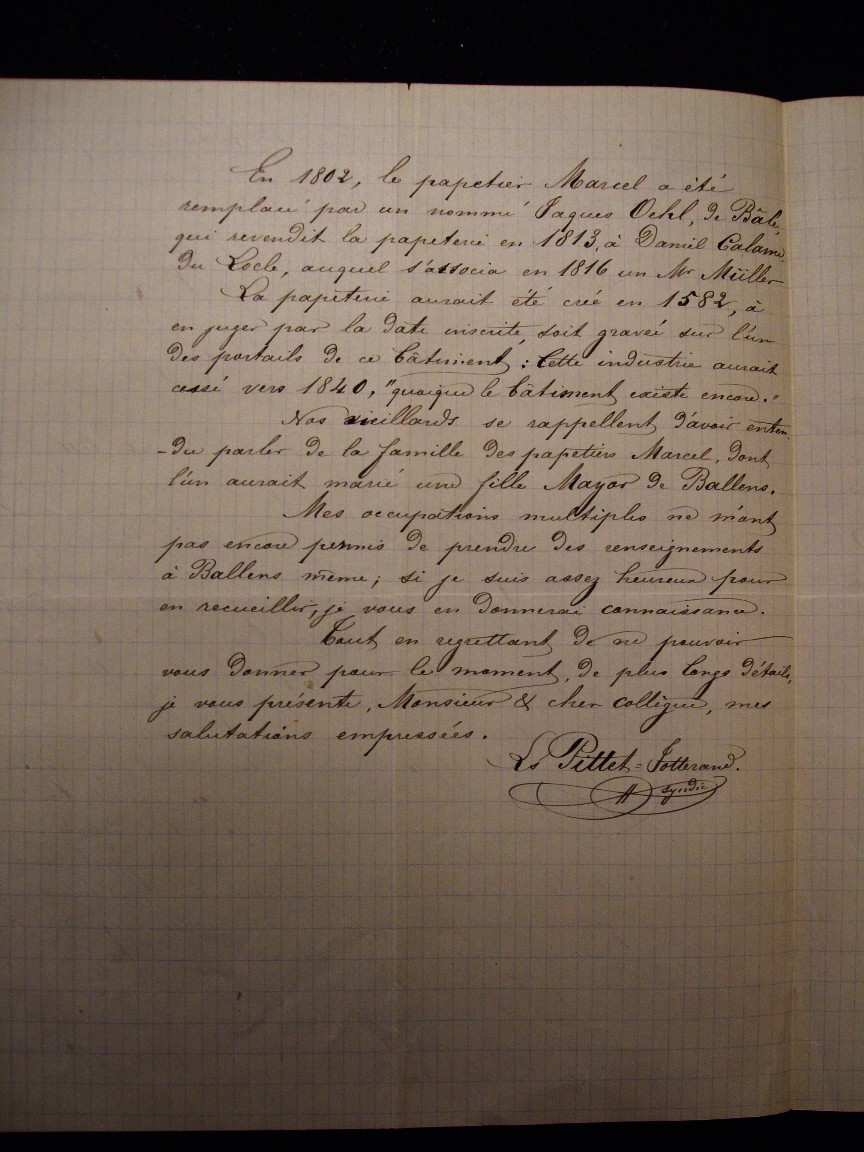 En 1802, le papetier Marcel a été
remplacé par un nommé Jaques Oehl, de Bâle,
qui revendit la papeterie en 1813, à Daniel Calame
du Locle, auquel s'associa en 1816 un Mr Müller
La papeterie aurait été créé en 1582, à
en juger par la date inscrite, soit gravée sur l'un
des portails de ce bâtiment : Cette industrie aurait
cessé vers 1840, "quoique le bâtiment existe encore."
Nos vieillards se rappellent d'avoir enten-
-du parler de la famille des papetiers Marcel, dont
l'un aurait marié une fille Mayor de Ballens.
Mes occupations multiples ne m'ont
pas encore permis de prendre des renseignements
à Ballens même; si je suis assez heureux pour
en recueillir, je vous en donnerai connaissance.
Tout en regrettant de ne pouvoir
vous donner pour le moment, de plus longs détails,
je vous présente, Monsieur & cher collègue, mes
salutations empressées.
Ls Pittet=Jotterand.
syndic